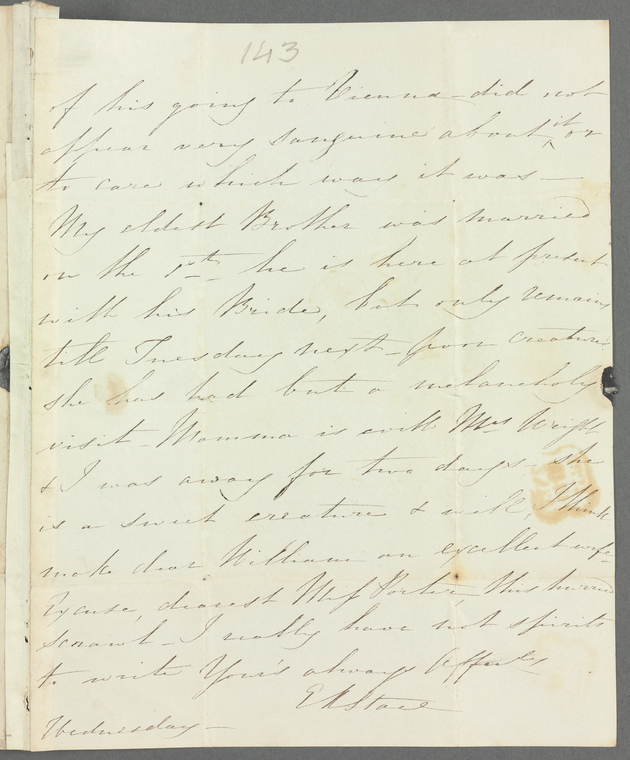 143
of his going to Vienna - did not
appear very sanguine about it or
to care which way it was -
My eldest Brother was married
on the 1st he is here at present
with his Bride, but only remains
till Tuesday next - poor creature
she has had but a melancholy
visit - Mamma is with Mrs Wright
& I was away for two days - she
is a sweet creature & will, I think
make dear William an excellent wife -
Excuse, dearest Miss Porter, this hurried
scrawl - I really have not spirits
to write Your's always Affectly
Wednesday -